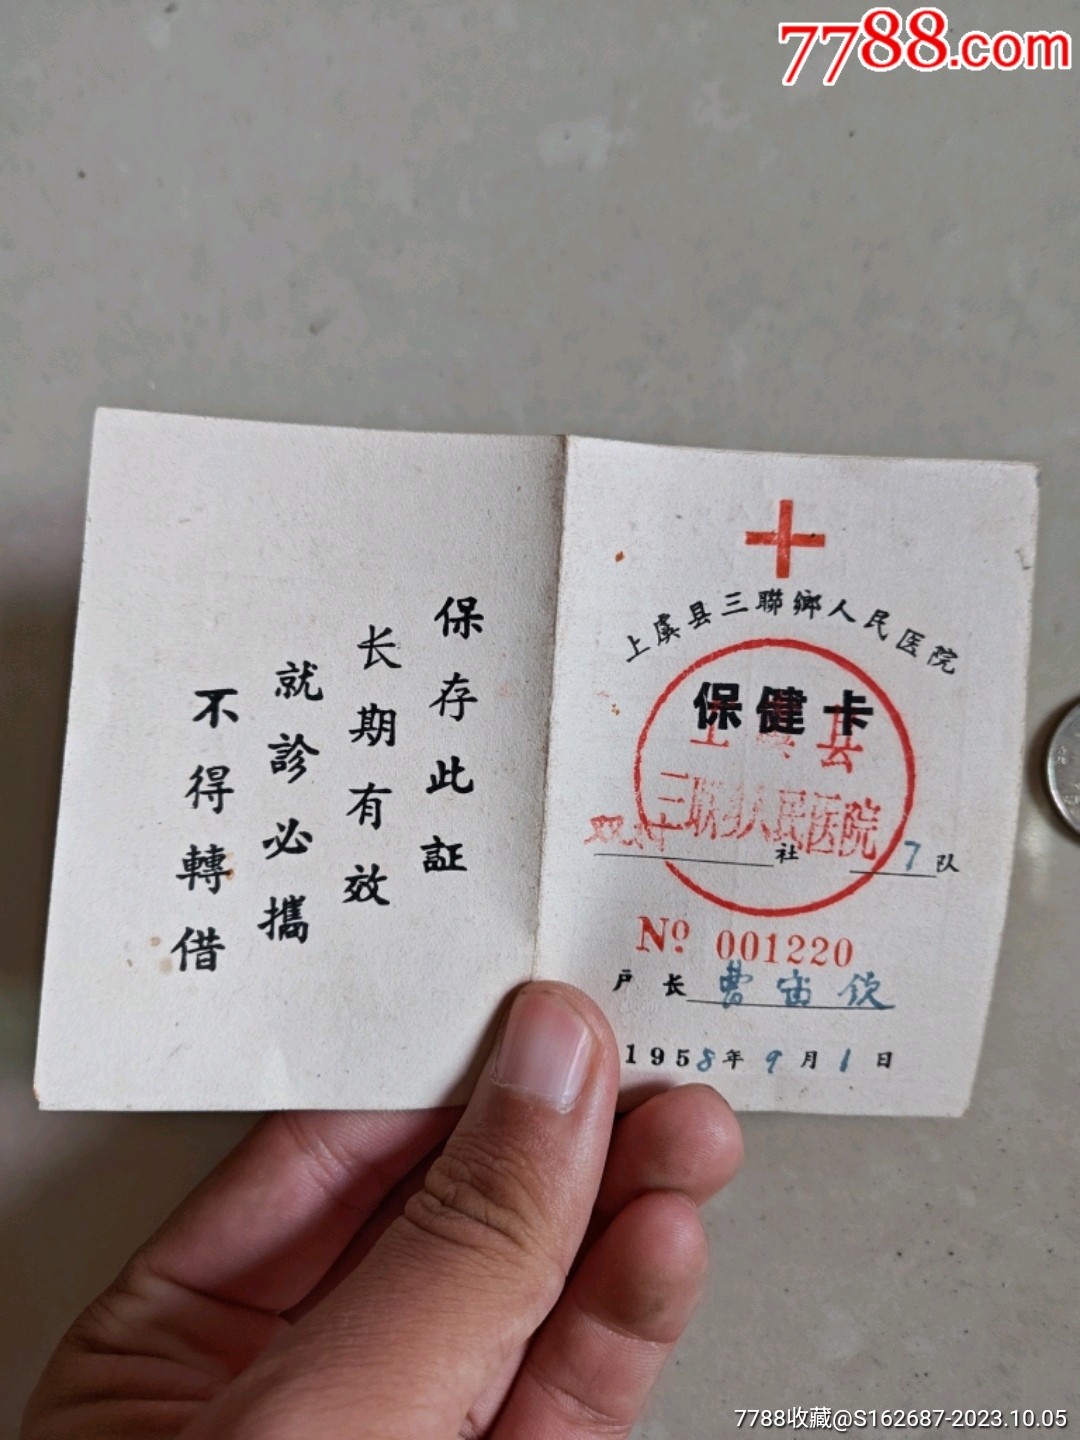 7788.com
保存此証
长期有效
就診必攜
不得轉借
上虞县三聯鄉人民医院
保健卡
上虞县
三联乡人民医院
社 7 队
№ 001220
户长 曹宙
1958年9月1日
7788收藏@S162687-2023.10.05